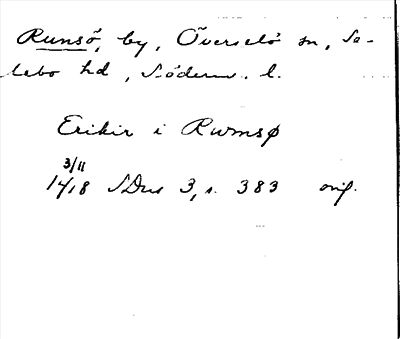 Runsö, by, Överselö sn, Se-
lebo hd, Söderm. l.
Erikir i Rwmsø
3/11
1418 SDns 3, s. 383 orig.